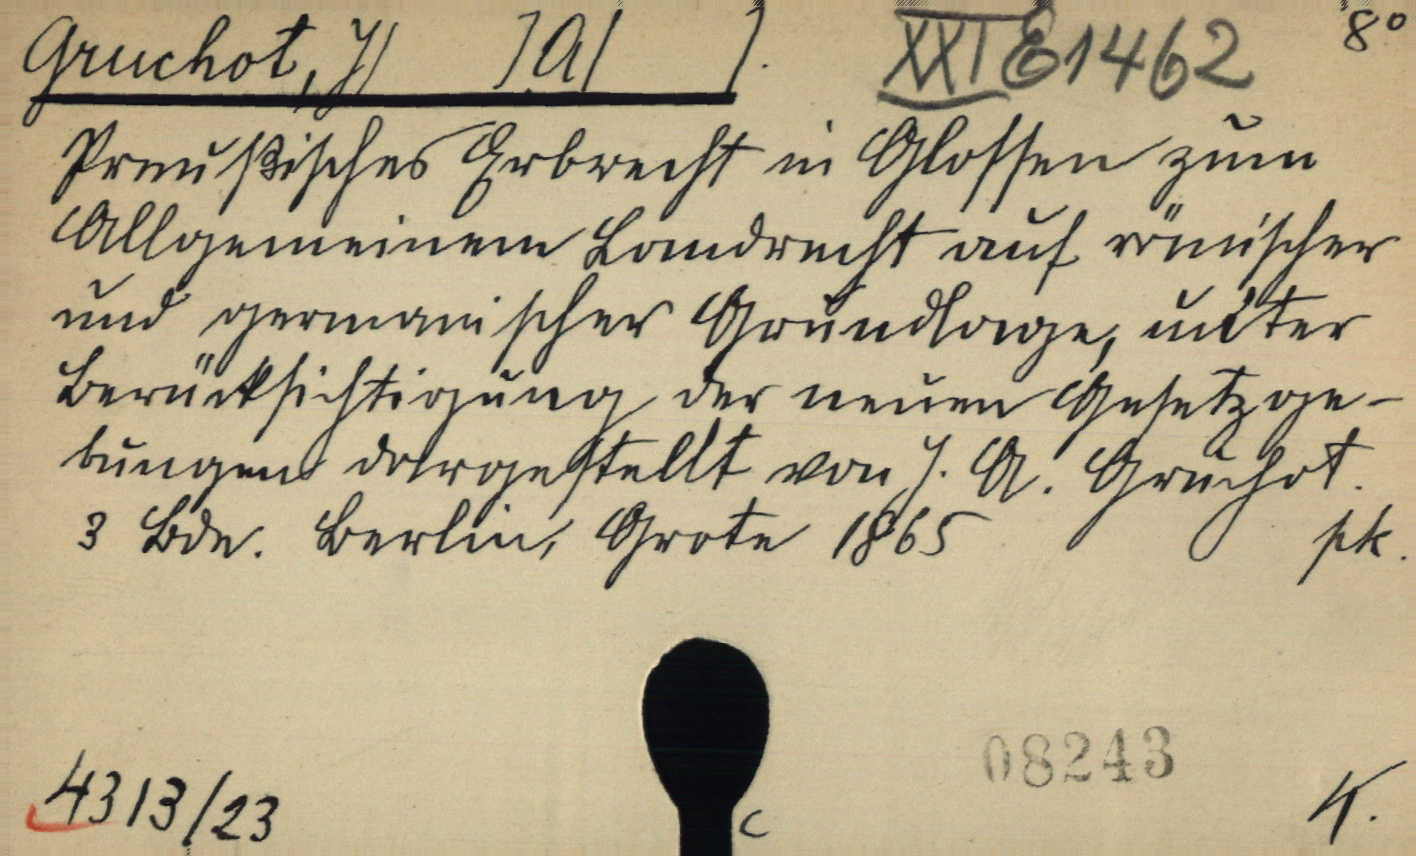 Gruchot, J[ ]A[ ]. XXI E 1462 8°
Preußisches Erbrecht in Glossen zum
Allgemeinen Landrecht auf römischer
und germanischer Grundlage, unter
Berücksichtigung der neuen Gesetzge-
bungen dargestellt von J. A. Gruchot.
3 Bde. Berlin, Grote 1865 pk.
08243
4313/23 c K.